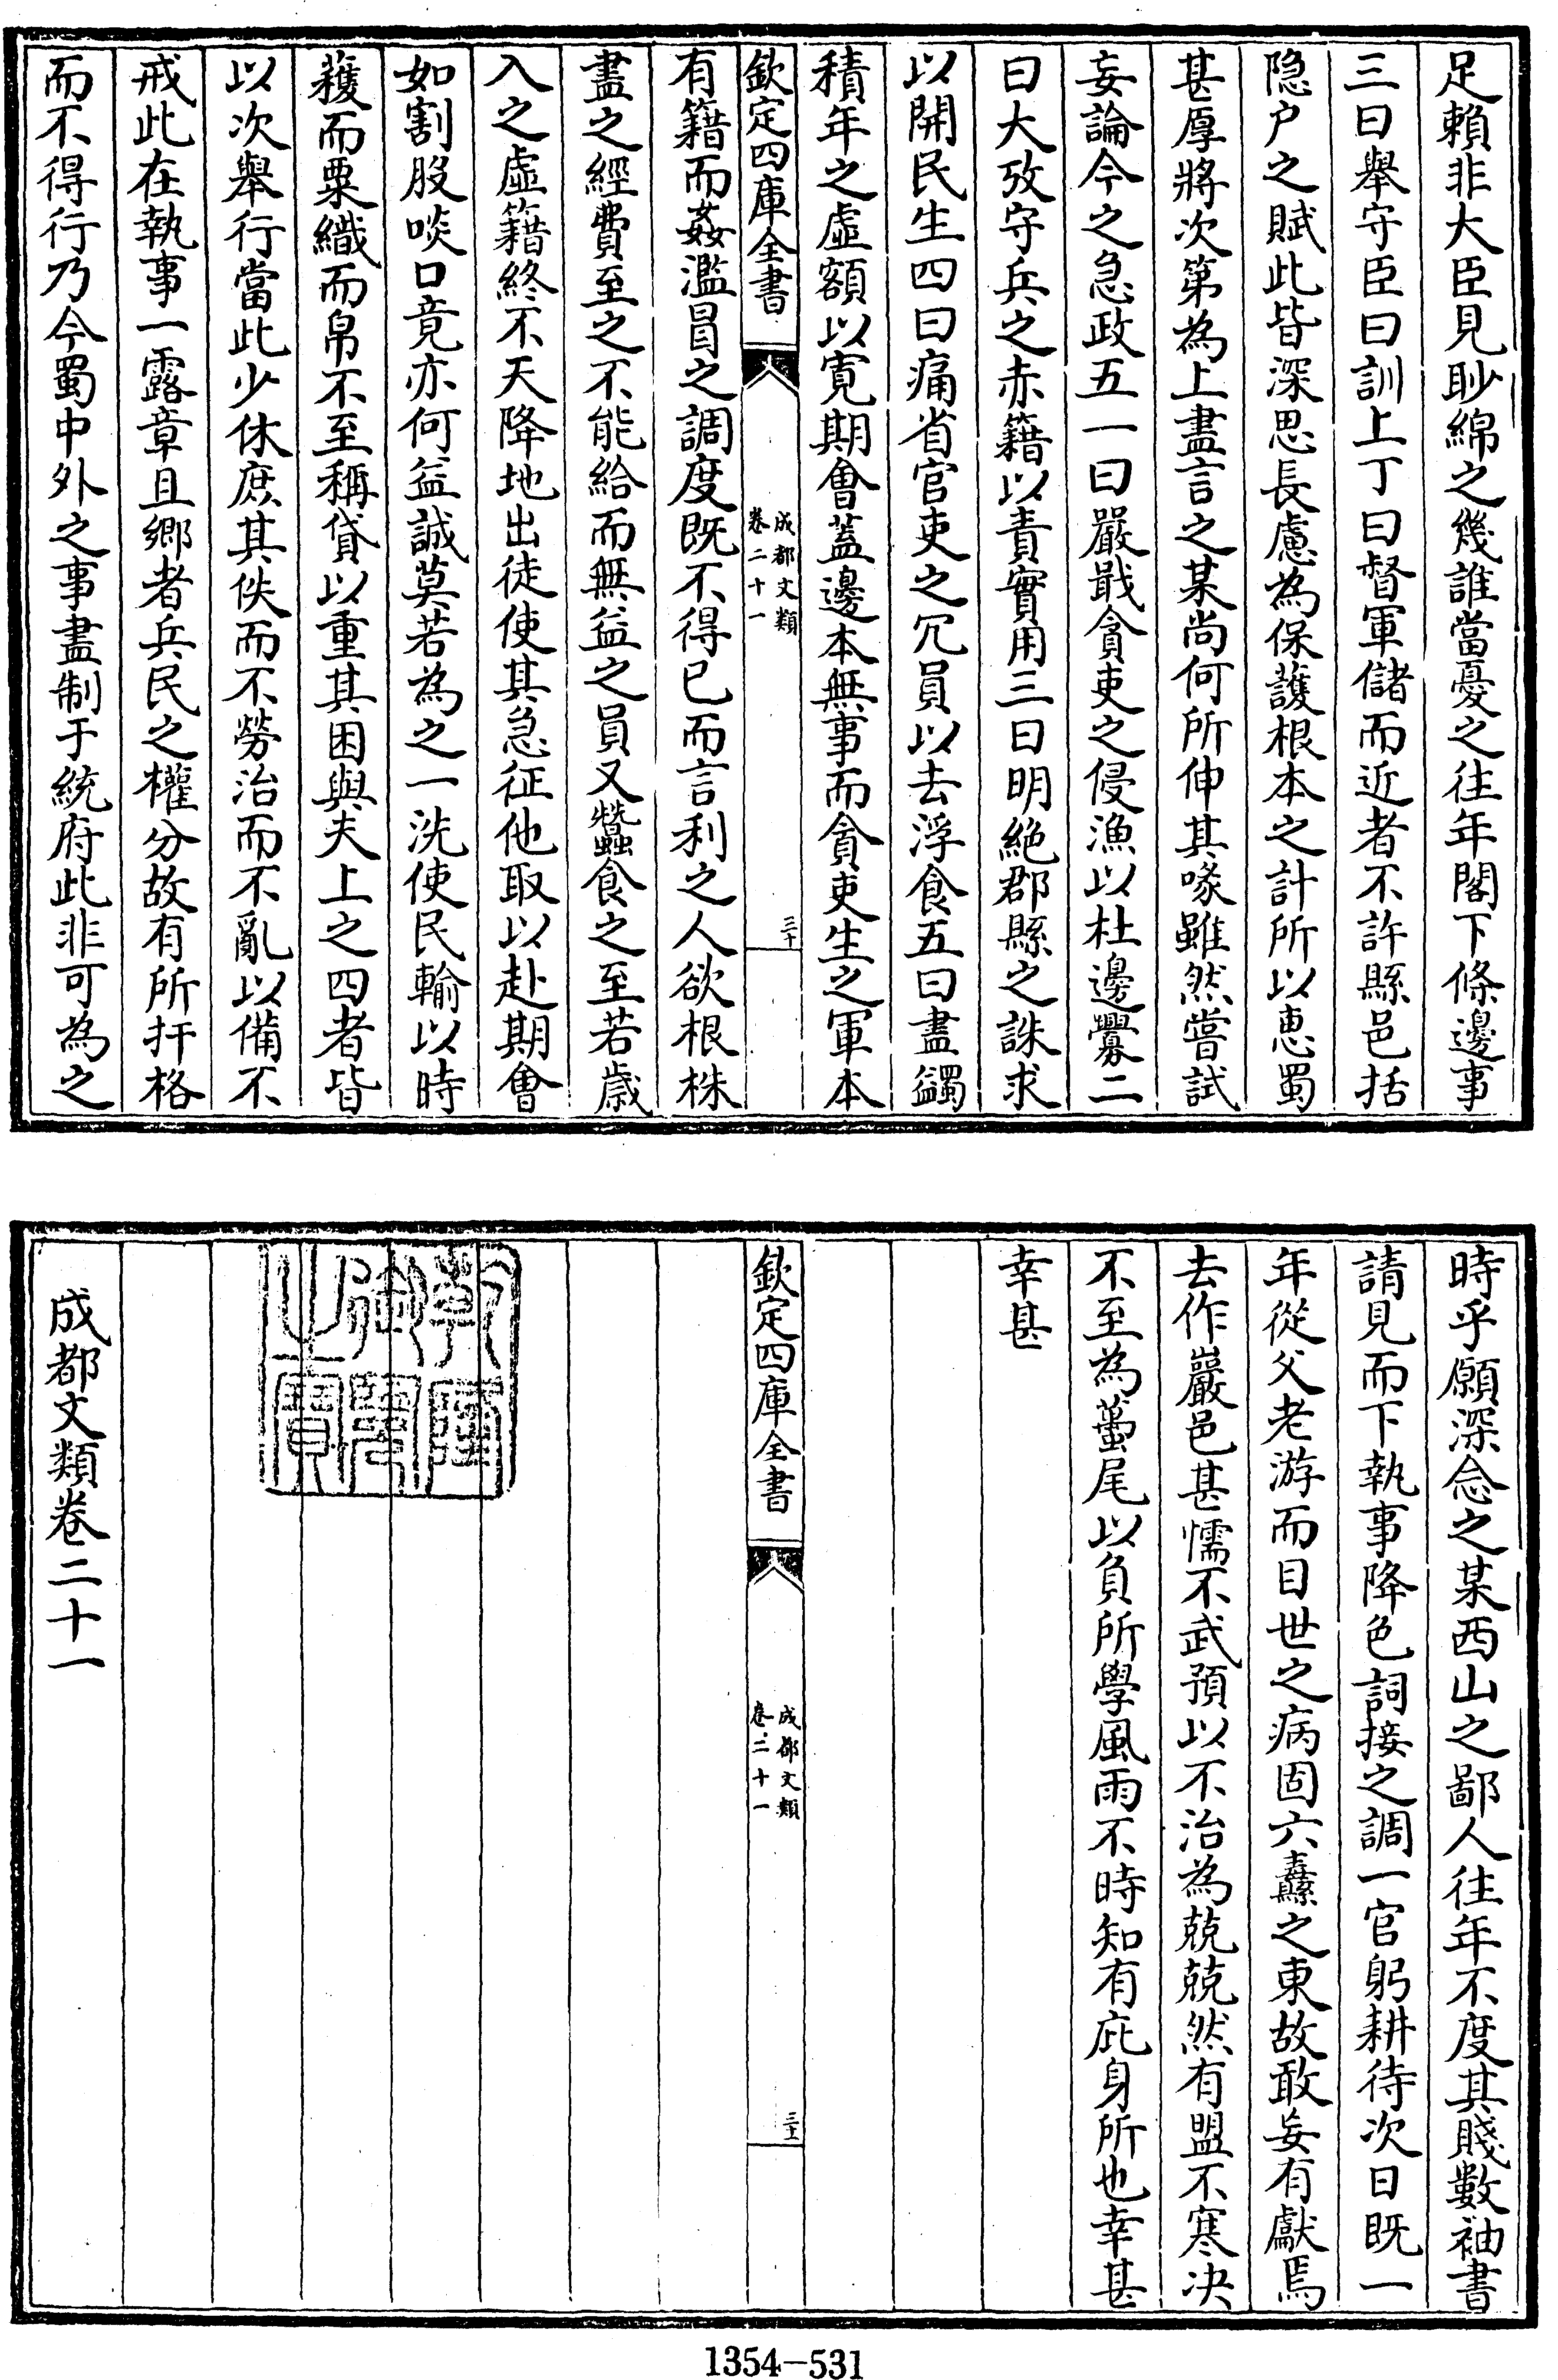 足賴非大臣見眇綿之幾誰當憂之往年閣下條邊事
三曰舉守臣曰訓上丁曰督軍儲而近者不許縣邑括
隐户之賦此皆深思長慮為保護根本之計所以恵蜀
甚厚將次第為上盡言之某尚何所伸其喙雖然嘗試
妄論今之急政五一曰嚴戢貪吏之侵漁以杜邊釁二
曰大攷守兵之赤籍以責實用三曰明絶郡縣之誅求
以開民生四曰痛省官吏之冗員以去浮食五曰盡蠲
積年之虛額以寛期會蓋邊本無事而貪吏生之軍本
欽定四庫全書
成都文類
卷二十一
三十
有籍而姦濫冒之調度既不得已而言利之人欲根株
盡之經費至之不能給而無益之員又蠶食之至若歲
入之虛籍終不天降地出徒使其急征他取以赴期會
如割股啖口竟亦何益誠莫若為之一洗使民輸以時
穫而粟織而帛不至稱貸以重其困與夫上之四者皆
以次舉行當此少休庶其佚而不勞治而不亂以備不
戒此在執事一露章且鄉者兵民之權分故有所扞格
而不得行乃今蜀中外之事盡制于統府此非可為之
時乎願深念之某西山之鄙人往年不度其賤數袖書
請見而下執事降色詞接之調一官躬耕待次日既一
年從父老游而目世之病固六纛之東故敢妄有獻焉
去作巖邑甚懦不武預以不治為兢兢然有盟不寒决
不至為蠆尾以負所學風雨不時知有庇身所也幸甚
幸甚
欽定四庫全書
成都文類
卷二十一
三十一
乾隆御覽之寶
成都文類卷二十一
1354-531